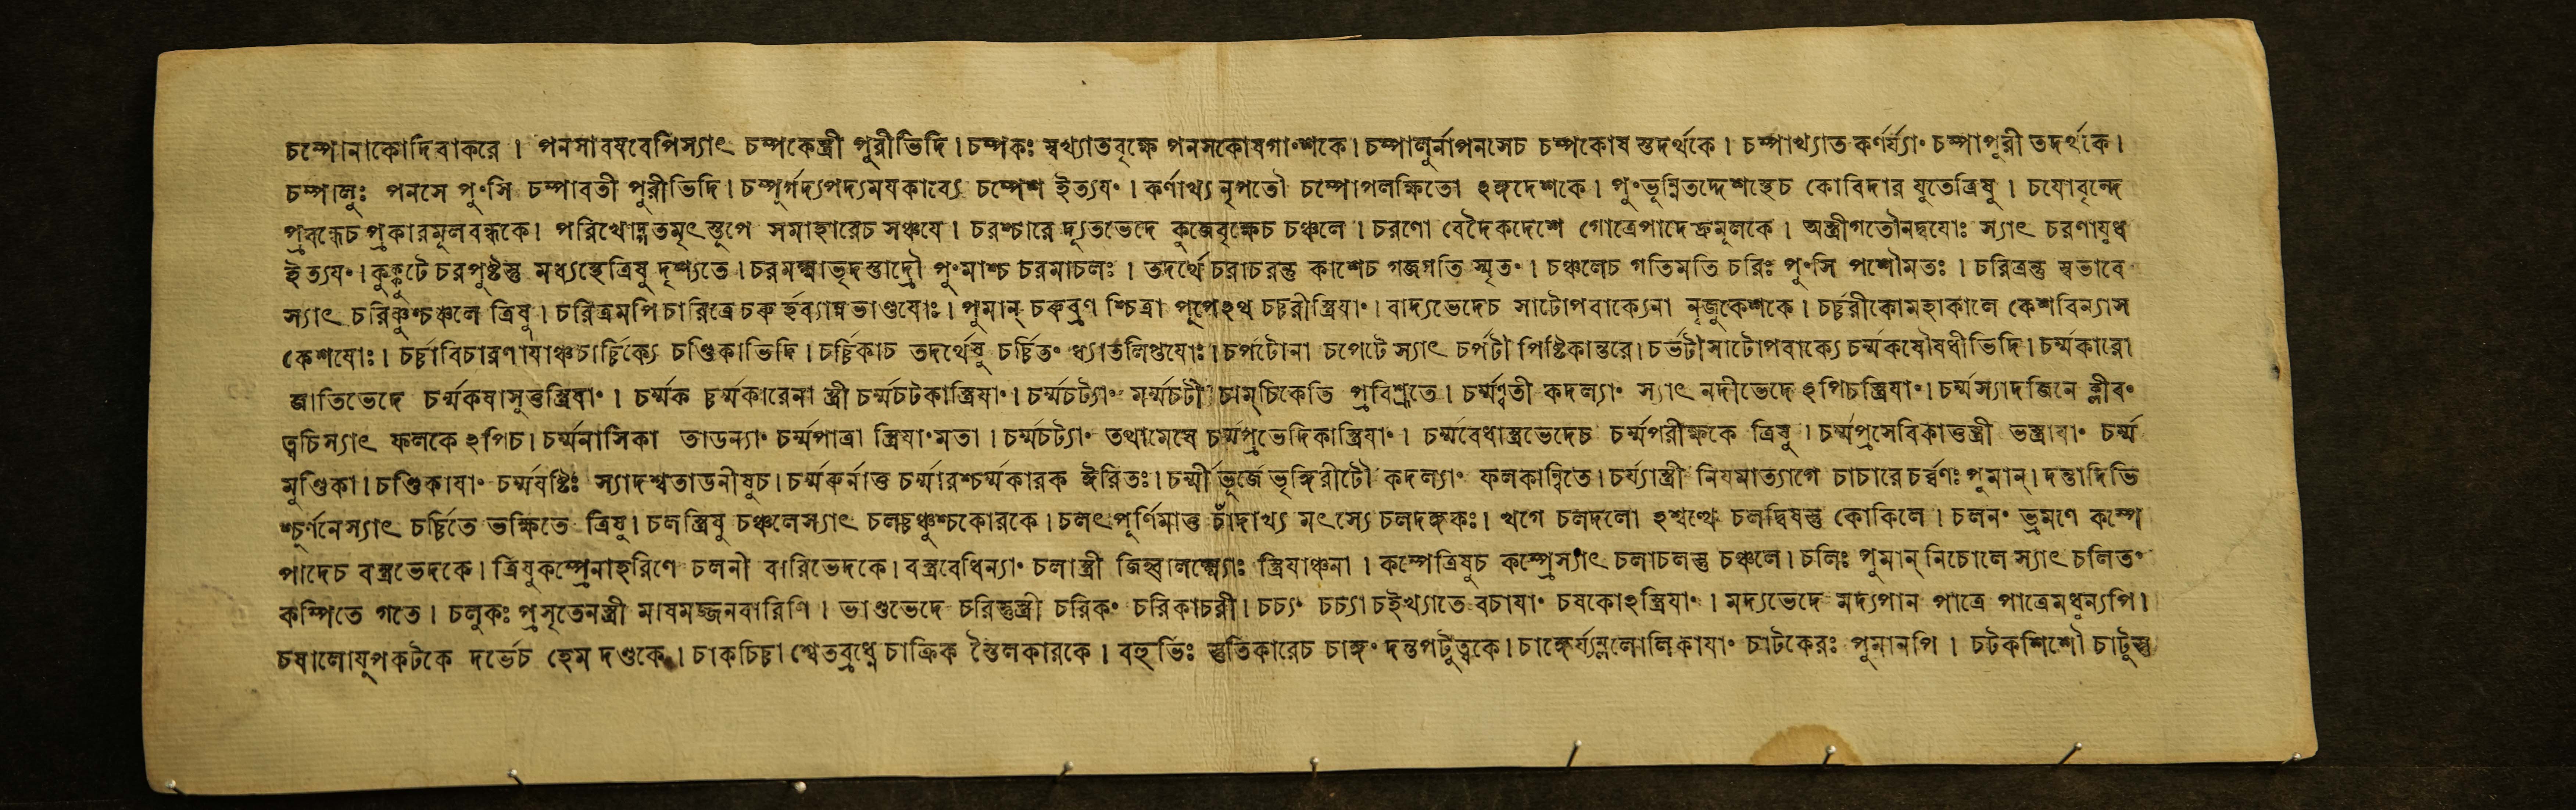 চম্পোনাকোদিবাকরে । পনসাবষবেপিস্যাৎ চম্পকেস্ত্রী পুরীভিদি । চম্পকঃ স্বখ্যাতবৃক্ষে পনসকোষগাংশকে । চম্পালুর্নাপনসেচ চম্পকোষ স্তদর্থকে । চম্পাখ্যাত কর্ণর্য্যাং চম্পাপুরী তদর্থকে ।
চম্পালুঃ পনসে পুংসি চম্পাবতী পুরীভিদি । চম্পূর্গদ্যপদ্যময়কাব্যে চম্পেশ ইত্যযং । কর্ণাখ্য নৃপতৌ চম্পোপলক্ষিতো ঽঙ্গদেশকে । পুংভূম্নিতদ্দেশস্থেচ কোবিদার যুতেত্রিষু । চযোবৃন্দে
প্রবন্ধেচ প্রকারমূলবন্ধকে । পরিখোদ্গতমৃৎ স্তুপে সমাহারেচ সঞ্চযে । চরশ্চারে দ্যূতভেদে কুজেবৃক্ষেচ চঞ্চলে । চরণো বেদৈকদেশে গোত্রেপাদে দ্রুমূলকে । অস্ত্রীগতৌনদ্বযোঃ স্যাৎ চরণাযুধ
ইত্যযং । কুক্কুটে চরপুষ্টস্তু মধ্যস্থেত্রিষু দৃশ্যতে । চরমক্ষ্মাভৃদস্তাদ্রৌ পুংমাশ্চ চরমাচলঃ । তদর্থে চরাচরস্তু কাশেচ গজগতি স্মৃতং । চঞ্চলেচ গতিমতি চরিঃ পুংসি পশৌমতঃ । চরিত্রস্তু স্বভাবে
স্যাৎ চরিষ্ণুশ্চঞ্চলে ত্রিষু । চরিত্রমপি চারিত্রে চরু র্হব্যান্নভাণ্ডযোঃ । পুমান্ চরুব্রণ শ্চিত্রা পূপেঽথ চর্চরীস্ত্রিযাং । বাদ্যভেদেচ সাটোপবাক্যেনা নৃজুকেশকে । চর্চ্চরীকোমহাকালে কেশবিন্যাস
কেশযোঃ । চর্চ্চাবিচারণাযাঞ্চচার্চ্চিক্যে চণ্ডিকাভিদি । চর্চ্চিকাচ তদর্থেষু চর্চ্চিতং ধ্যাতলিপ্তযোঃ । চর্পটোনা চপেটে স্যাৎ চর্পটী পিষ্টিকান্তরে । চর্ভটীসাটোপবাক্যে চর্ম্মকষৌষধীভিদি । চর্ম্মকারো
জাতিভেদে চর্ম্মকষাসুত্তস্ত্রিযাং । চর্ম্মক চর্ম্মকারেনা স্ত্রী চর্ম্মচটকাস্ত্রিযাং । চর্ম্মচট্যাং মর্ম্মচটী চাম্চিকেতি প্রবিশ্রুতে । চর্ম্মণ্বতী কদল্যাং স্যাৎ নদীভেদে ঽপিচস্ত্রিযাং । চর্ম্মস্যাদজিনে ক্লীবং
ত্বচিস্যাৎ ফলকে ঽপিচ । চর্ম্মনাসিকা তাডন্যাং চর্ম্মপাত্রা স্ত্রিযাংমতা । চর্ম্মচট্যাং তথামেষে চর্ম্মপ্রভেদিকাস্ত্রিযাং । চর্ম্মবেধাস্ত্রভেদেচ চর্ম্মপরীক্ষকে ত্রিষু । চর্ম্মপ্রসেবিকাত্তস্ত্রী ভস্ত্রাযাং চর্ম্ম
মুণ্ডিকা । চণ্ডিকাযাং চর্ম্মযষ্টিঃ স্যাদশ্বতাডনীষুচ । চর্ম্মরুর্নাত্ত চর্ম্মারশ্চর্ম্মকারক ঈরিতঃ । চর্ম্মী ভূর্জে ভৃঙ্গিরীটৌ কদল্যাং ফলকান্বিতে । চর্য্যাস্ত্রী নিযমাত্যাগে চাচারে চর্ব্বণঃ পুমান্ । দন্তাদিভি
শ্চূর্ণনেস্যাৎ চর্ব্বিতে ভক্ষিতে ত্রিষু । চলস্ত্রিষু চঞ্চলেস্যাৎ চলচ্চঞ্চুশ্চকোরকে । চলৎপূর্ণিমাত্ত চাঁদাখ্য মৎস্যে চলদঙ্গকঃ । খগে চলদলো ঽশ্বত্থে চলদ্বিষস্তু কোকিলে । চলনং ভ্রমণে কম্পে
পাদেচ বস্ত্রভেদকে । ত্রিষুকম্প্রেনাহরিণে চলনী বারিভেদকে । বস্ত্রবেধিন্যাং চলাস্ত্রী জিহ্বালক্ষ্ম্যোঃ স্ত্রিযাঞ্চনা । কম্পেত্রিষুচ কম্প্রেস্যাৎ চলাচলস্তু চঞ্চলে । চলিঃ পুমান্ নিচোলে স্যাৎ চলিতং
কম্পিতে গতে । চলুকঃ প্রসৃতেনস্ত্রী মাষমজ্জনবারিণি । ভাণ্ডভেদে চরিস্তুস্ত্রী চরিকং চরিকাচরী । চচ্যং চচ্যা চইখ্যাতে বচাযাং চষকোঽস্ত্রিযাং । মদ্যভেদে মদ্যপান পাত্রে পাত্রেমধুন্যপি ।
চষালোযূপকটকে দর্ভেচ হেম দণ্ডকে । চাকচিচ্চা শ্বেতবুধ্নে চাক্রিক স্তৈলকারকে । বহুভিঃ স্তুতিকারেচ চাঙ্গং দন্তপটুত্বকে । চাঙ্গের্য্যম্ললোলিকাযাং চাটকেরঃ পুমানপি । চটকশিশৌ চাটুস্তু